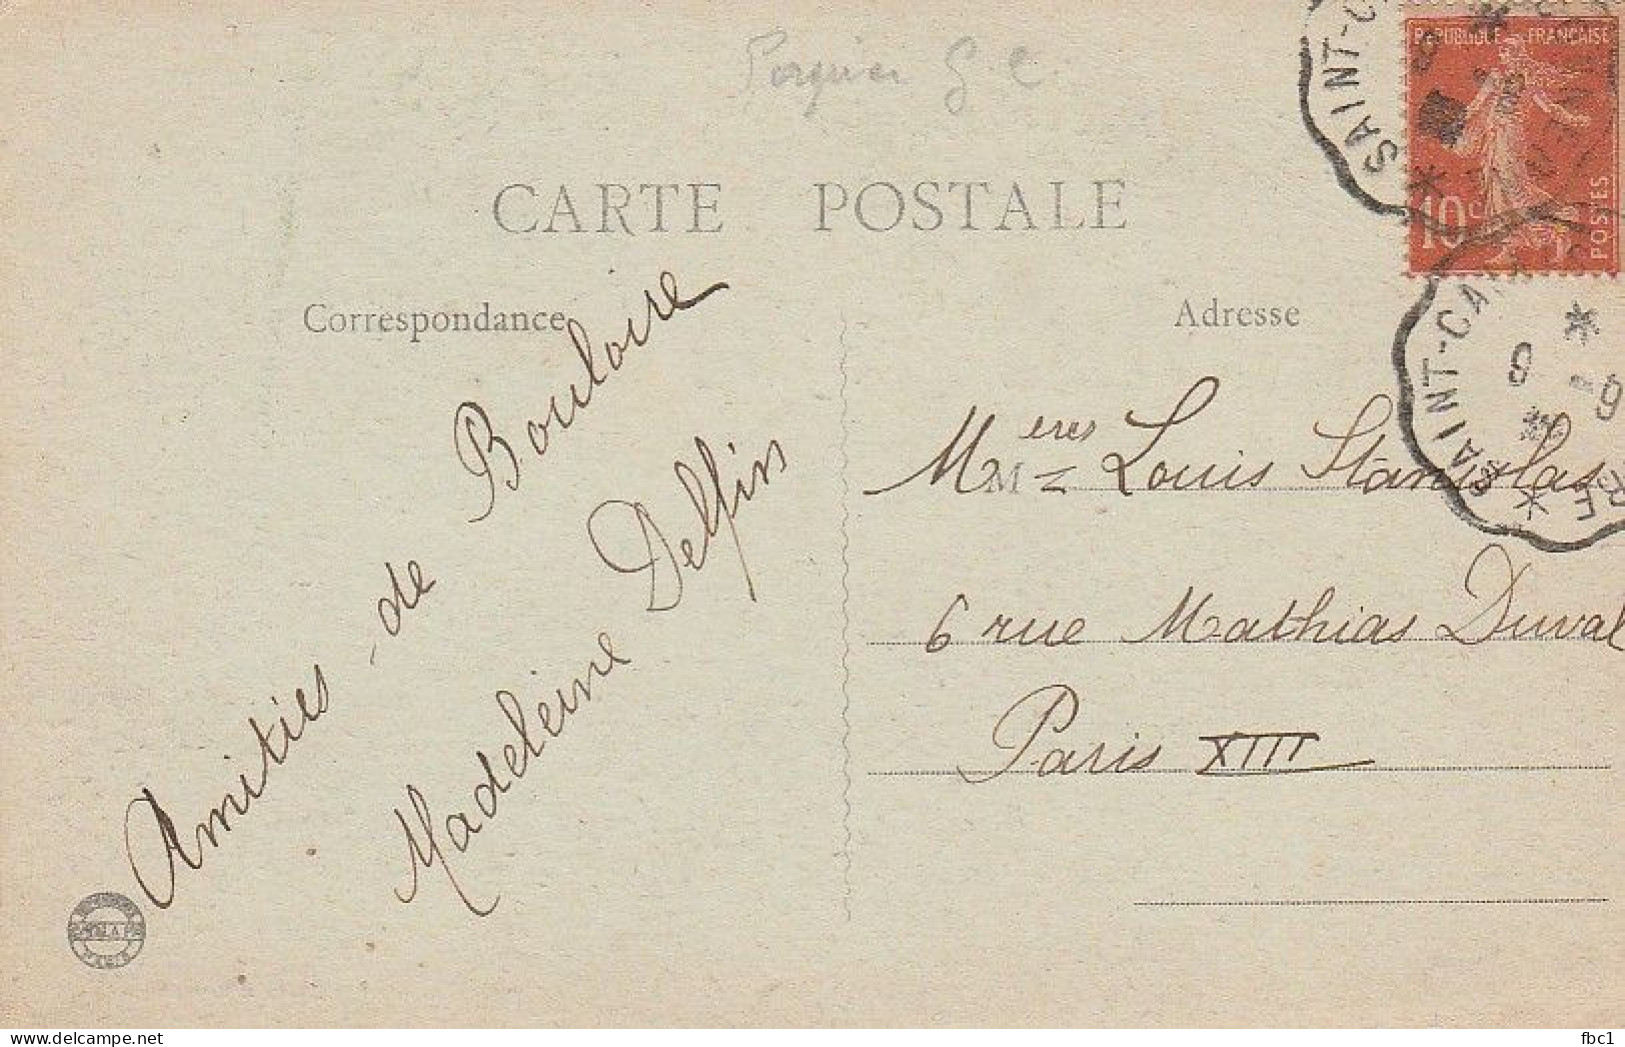 RÉPUBLIQUE FRANÇAISE
10 c
POSTES
SAINT-C
CARTE POSTALE
Correspondance
Adresse
SAINT-CALAIS
9 -9
Amitiés de Bouloire
Madeleine Delfin
M
Meres Louis Stanislas
6 rue Mathias Duval
Paris XIII
PARIS
fbc1